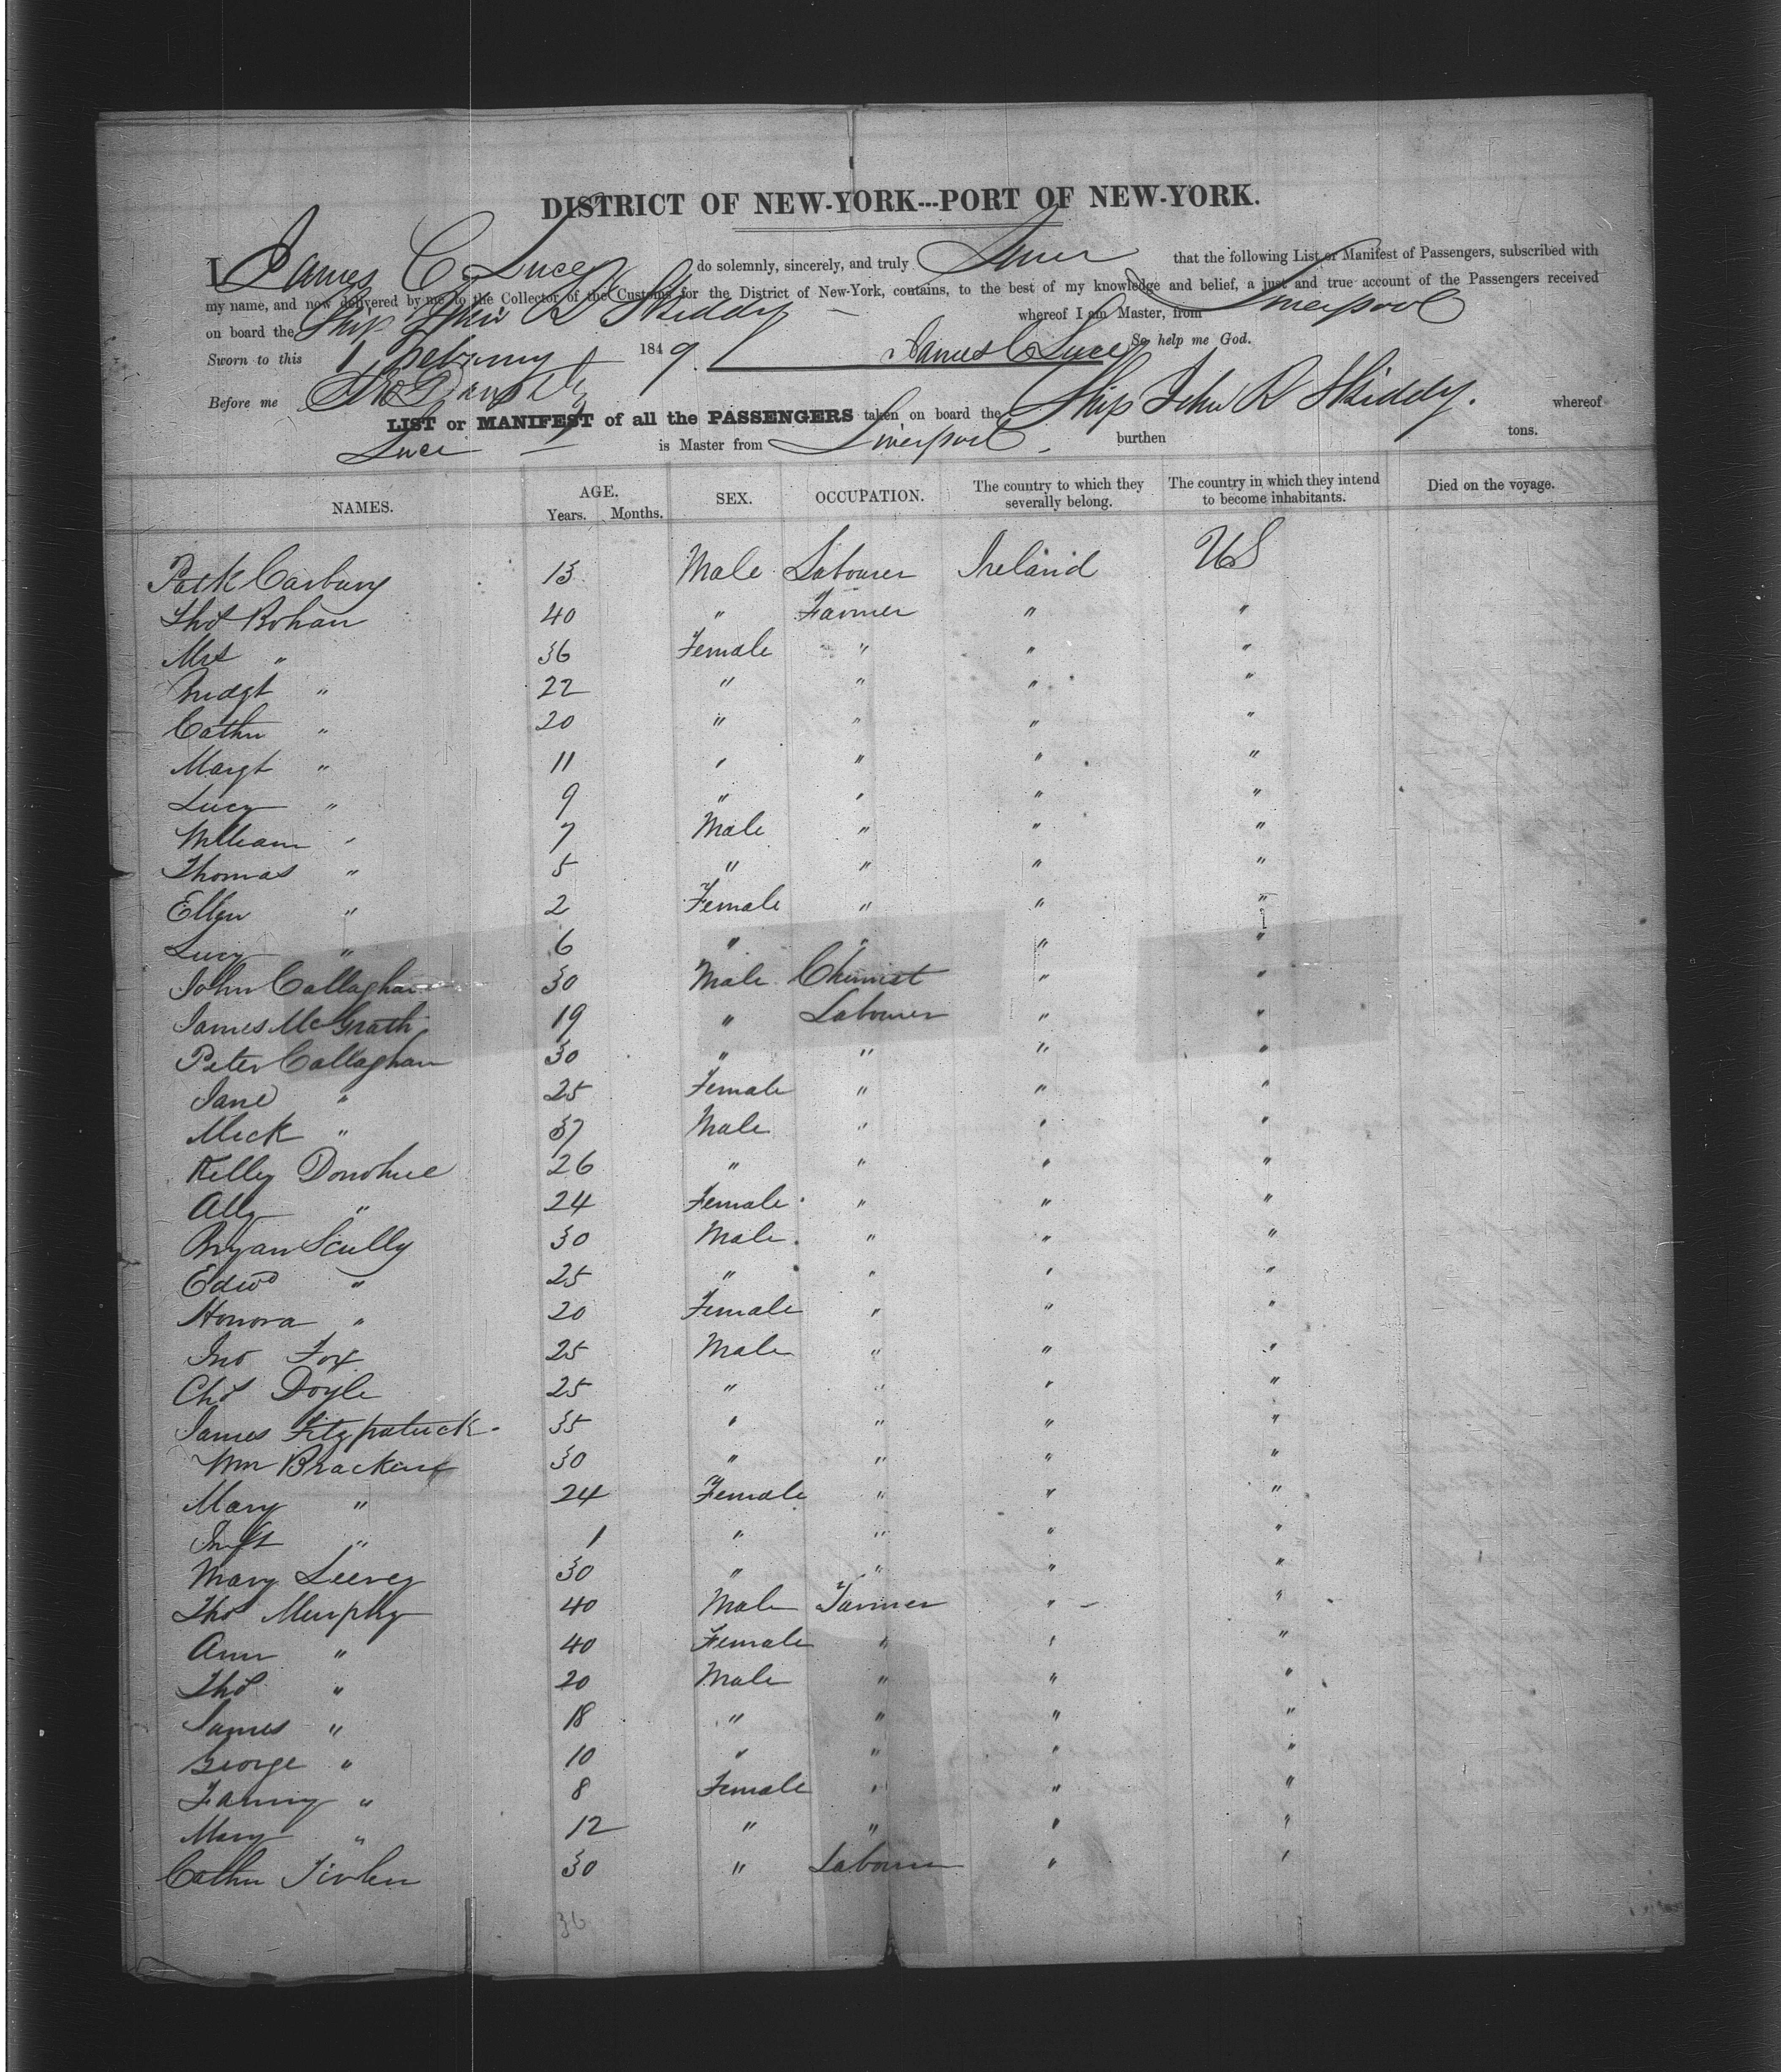 DISTRICT OF NEW-YORK---PORT OF NEW-YORK.
I, James C. Luce do solemnly, sincerely, and truly Swear that the following List or Manifest of Passengers, subscribed with
my name, and now delivered by me to the Collector of the Customs for the District of New-York, contains, to the best of my knowledge and belief, a just and true account of the Passengers received
on board the Ship John R Skiddy — whereof I am Master, from Liverpool
Sworn to this 1 February 1849 James C Luce So help me God.
Before me
LIST or MANIFEST of all the PASSENGERS taken on board the Ship John R Skiddy. whereof
Luce — is Master from Liverpool, burthen tons.
NAMES. AGE. Years. Months. SEX. OCCUPATION. The country to which they severally belong. The country in which they intend to become inhabitants. Died on the voyage.
Patk Carbury 13 Male Labourer Ireland US
Thos Bohan 40 " Farmer " "
Mrs " 36 Female " " "
Bridgt " 22 " " " "
Cathn " 20 " " " "
Margt " 11 " " " "
Lucy " 9 " " " "
William " 7 Male " " "
Thomas " 5 " " " "
Ellen " 2 Female " " "
Lucy " 6 " " " "
John Callaghan 30 Male Chemist " "
James McGrath 19 " Labourer " "
Peter Callaghan 30 " " " "
Jane " 25 Female " " "
Mick " 37 Male " " "
Kelly Donohue 26 " " " "
Ally " 24 Female " " "
Bryan Scully 30 Male " " "
Edwd " 25 " " " "
Honora " 20 Female " " "
Jno Fox 25 Male " " "
Chs Doyle 25 " " " "
James Fitzpatrick 35 " " " "
Wm Bracken 30 " " " "
Mary " 24 Female " " "
Inft " 1 " " " "
Mary Leevey 30 " " " "
Thos Murphy 40 Male Farmer " "
Ann " 40 Female " " "
Thos " 20 Male " " "
James " 18 " " " "
George " 10 " " " "
Fanny " 8 Female " " "
Mary " 12 " " " "
Cathn 30 " Labourer " "
36